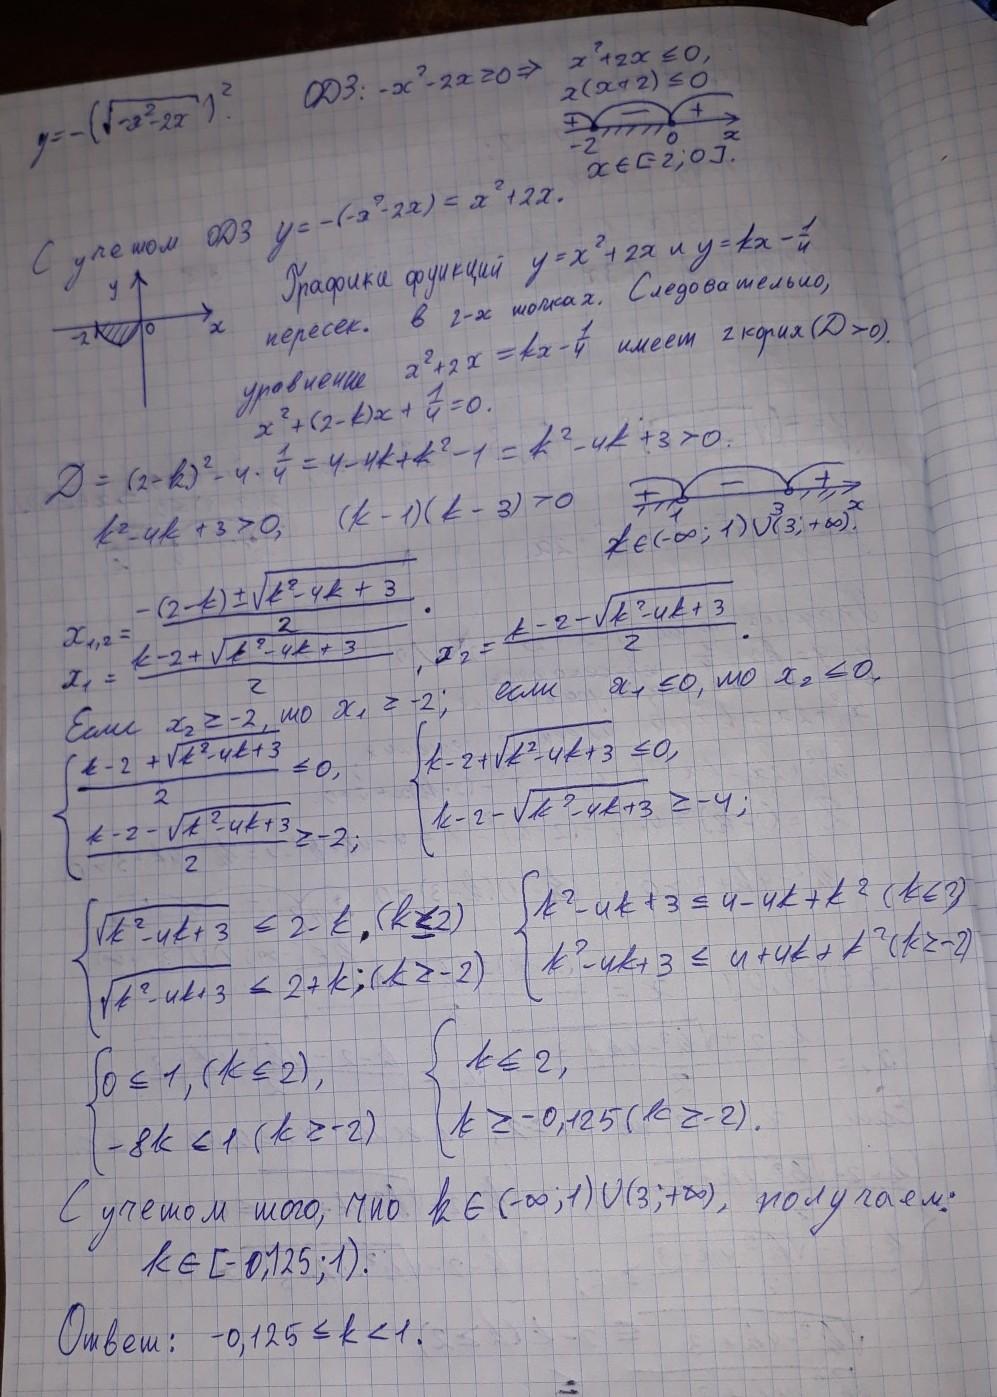 y=-(√-x²-2x)². ОДЗ: -x²-2x≥0⇒ x²+2x≤0,
x(x+2)≤0
+ − +
-2 0 x
x∈[-2;0].
С учетом ОДЗ y=-(-x²-2x)=x²+2x.
y
-2 0 x
Графики функций y=x²+2x и y=kx-1/4
пересек. в 2-х точках. Следовательно,
уравнение x²+2x=kx-1/4 имеет 2 корня (D>0).
x²+(2-k)x+1/4=0.
D=(2-k)²-4·1/4=4-4k+k²-1=k²-4k+3>0.
k²-4k+3>0, (k-1)(k-3)>0
+ − +
1 3 x
k∈(-∞;1)∪(3;+∞).
x₁,₂=(-(2-k)±√k²-4k+3)/2.
x₁=(k-2+√k²-4k+3)/2, x₂=(k-2-√k²-4k+3)/2.
Если x₂≥-2, то x₁≥-2; если x₁≤0, то x₂≤0.
{(k-2+√k²-4k+3)/2≤0, {k-2+√k²-4k+3≤0,
(k-2-√k²-4k+3)/2≥-2; k-2-√k²-4k+3≥-4;
{√k²-4k+3≤2-k, (k≤2) {k²-4k+3≤4-4k+k² (k≤2)
√k²-4k+3≤2+k; (k≥-2) k²-4k+3≤4+4k+k² (k≥-2)
{0≤1, (k≤2), {k≤2,
-8k≤1 (k≥-2) k≥-0,125 (k≥-2).
С учетом того, что k∈(-∞;1)∪(3;+∞), получаем:
k∈[-0,125;1).
Ответ: -0,125≤k<1.